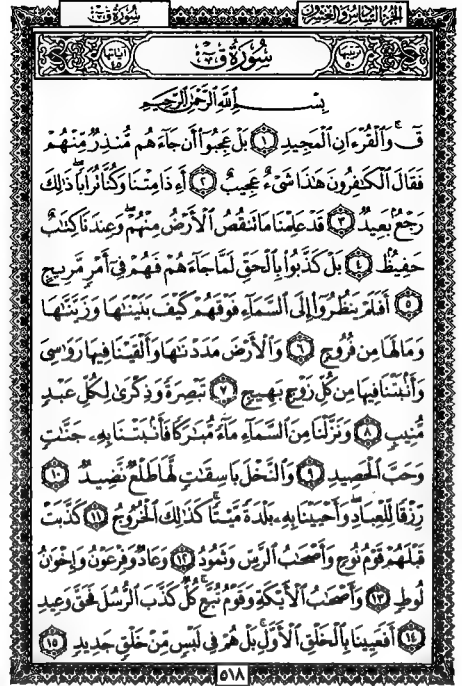 سُورَةُ قٓ
الجزء السادس والعشرون
آياتها ٤٥
سُورَةُ قٓ
ترتيبها ٥٠
بِسْمِ اللَّهِ الرَّحْمَٰنِ الرَّحِيمِ
قٓۚ وَالْقُرْءَانِ الْمَجِيدِ ١ بَلْ عَجِبُوٓا۟ أَن جَآءَهُم مُّنذِرٌ مِّنْهُمْ
فَقَالَ الْكَٰفِرُونَ هَٰذَا شَىْءٌ عَجِيبٌ ٢ أَءِذَا مِتْنَا وَكُنَّا تُرَابًاۖ ذَٰلِكَ
رَجْعٌۢ بَعِيدٌ ٣ قَدْ عَلِمْنَا مَا تَنقُصُ الْأَرْضُ مِنْهُمْۖ وَعِندَنَا كِتَٰبٌ
حَفِيظٌۢ ٤ بَلْ كَذَّبُوا۟ بِالْحَقِّ لَمَّا جَآءَهُمْ فَهُمْ فِىٓ أَمْرٍ مَّرِيجٍ
٥ أَفَلَمْ يَنظُرُوٓا۟ إِلَى السَّمَآءِ فَوْقَهُمْ كَيْفَ بَنَيْنَٰهَا وَزَيَّنَّٰهَا
وَمَا لَهَا مِن فُرُوجٍ ٦ وَالْأَرْضَ مَدَدْنَٰهَا وَأَلْقَيْنَا فِيهَا رَوَٰسِىَ
وَأَنۢبَتْنَا فِيهَا مِن كُلِّ زَوْجٍۭ بَهِيجٍ ٧ تَبْصِرَةً وَذِكْرَىٰ لِكُلِّ عَبْدٍ
مُّنِيبٍ ٨ وَنَزَّلْنَا مِنَ السَّمَآءِ مَآءً مُّبَٰرَكًا فَأَنۢبَتْنَا بِهِۦ جَنَّٰتٍ
وَحَبَّ الْحَصِيدِ ٩ وَالنَّخْلَ بَاسِقَٰتٍ لَّهَا طَلْعٌ نَّضِيدٌ ١٠
رِّزْقًا لِّلْعِبَادِۖ وَأَحْيَيْنَا بِهِۦ بَلْدَةً مَّيْتًاۚ كَذَٰلِكَ الْخُرُوجُ ١١ كَذَّبَتْ
قَبْلَهُمْ قَوْمُ نُوحٍ وَأَصْحَٰبُ الرَّسِّ وَثَمُودُ ١٢ وَعَادٌ وَفِرْعَوْنُ وَإِخْوَٰنُ
لُوطٍ ١٣ وَأَصْحَٰبُ الْأَيْكَةِ وَقَوْمُ تُبَّعٍۚ كُلٌّ كَذَّبَ الرُّسُلَ فَحَقَّ وَعِيدِ
١٤ أَفَعَيِينَا بِالْخَلْقِ الْأَوَّلِۚ بَلْ هُمْ فِى لَبْسٍ مِّنْ خَلْقٍ جَدِيدٍ ١٥
٥١٨